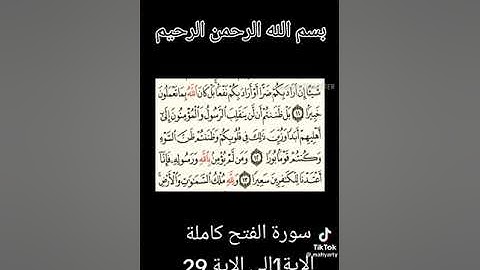 بسم الله الرحمن الرحيم
شَيْئًا إِنْ أَرَادَ بِكُمْ ضَرًّا أَوْ أَرَادَ بِكُمْ نَفْعًا بَلْ كَانَ اللَّهُ بِمَا تَعْمَلُونَ
خَبِيرًا ١١ بَلْ ظَنَنتُمْ أَن لَّن يَنقَلِبَ الرَّسُولُ وَالْمُؤْمِنُونَ إِلَىٰ
أَهْلِيهِمْ أَبَدًا وَزُيِّنَ ذَٰلِكَ فِي قُلُوبِكُمْ وَظَنَنتُمْ ظَنَّ السَّوْءِ
وَكُنتُمْ قَوْمًا بُورًا ١٢ وَمَن لَّمْ يُؤْمِن بِاللَّهِ وَرَسُولِهِ فَإِنَّا
أَعْتَدْنَا لِلْكَافِرِينَ سَعِيرًا ١٣ وَلِلَّهِ مُلْكُ السَّمَاوَاتِ وَالْأَرْضِ
سورة الفتح كاملة
TikTok
الاية1الى الاية 29